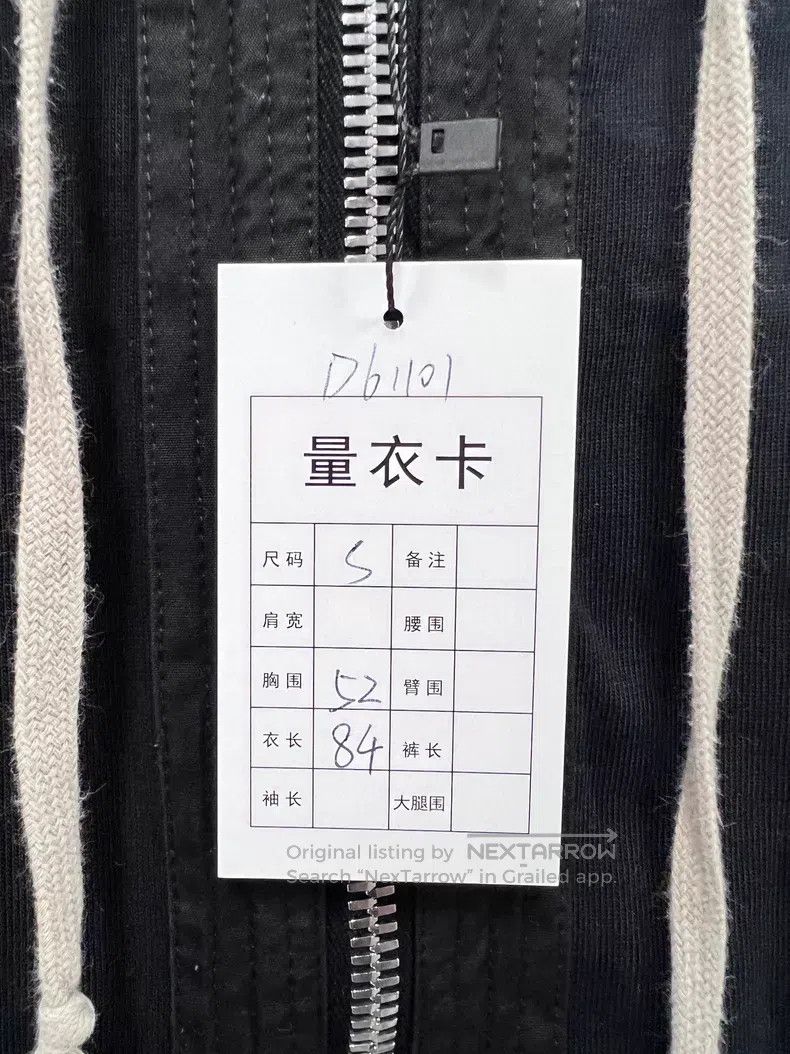 D61101
量衣卡
尺码 S 备注
肩宽 腰围
胸围 52 臂围
衣长 84 裤长
袖长 大腿围
Original listing by NEXTARROW
Search “NexTarrow” in Grailed app.